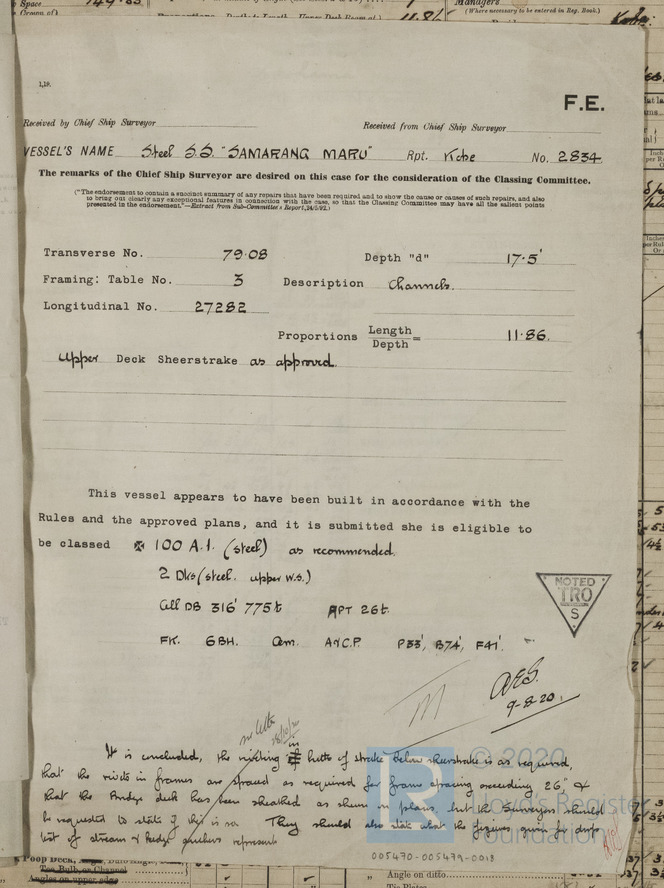 Space 149.83
Managers
(Where necessary to be entered in Reg. Book.)
1,19.
F.E.
Received by Chief Ship Surveyor
Received from Chief Ship Surveyor
VESSEL'S NAME Steel S.S. "SAMARANG MARU" Rpt. Kobe No. 2834
The remarks of the Chief Ship Surveyor are desired on this case for the consideration of the Classing Committee.
("The endorsement to contain a succinct summary of any repairs that have been required and to show the cause or causes of such repairs, and also
to bring out clearly any exceptional features in connection with the case, so that the Classing Committee may have all the salient points
presented in the endorsement."—Extract from Sub-Committee's Report,
Transverse No. 79.08 Depth "d" 17.5'
Framing: Table No. 3 Description Channels.
Longitudinal No. 27282
Proportions Length
Depth = 11.86.
Upper Deck Sheerstrake as approved.
This vessel appears to have been built in accordance with the
Rules and the approved plans, and it is submitted she is eligible to
be classed ✠ 100 A.1. (steel) as recommended.
2 Dks (steel. upper W.S.)
Cell DB 316' 775t APT 26t.
FK. 6BH. Cem. A&CP. P33', B74', F41'.
NOTED
TRO
S
9-8-20.
It is concluded, the riveting in butts of strake below sheerstrake is as required,
that the rivets in frames are spaced as required for frame spacing exceeding 26" &
that the Bridge deck has been sheathed as shewn in plans, but the Surveyors should
be requested to state if this is so. They should also state what the figures given for
of stream & kedge anchors represent
© 2020
Lloyd's Register
Foundation
005470-005479-0013
Poop Deck,
Tee Bulb, or Channel
Angles on upper edge
Angle on ditto